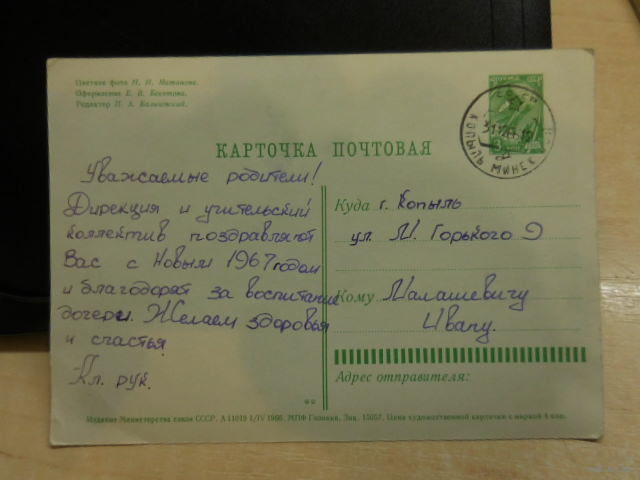 Цветное фото Н. И. Матанова.
Оформление Е. В. Бекетова.
Редактор П. А. Кальницкий.
СССР
КОПЫЛЬ МИНСК
КАРТОЧКА ПОЧТОВАЯ
Уважаемые родители!
Дирекция и учительский
коллектив поздравляют
Вас с Новым 1967 годом
и благодорят за воспитание
дочери. Желаем здоровья
и счастья.
Кл. рук.
Куда г. Копыль
ул. М. Горького 9
Кому Малашевичу
Ивану.
Адрес отправителя:
Издание Министерства связи СССР. А 11019 1/IV 1966. МПФ Гознака. Зак. 15057. Цена художественной карточки с маркой 4 коп.